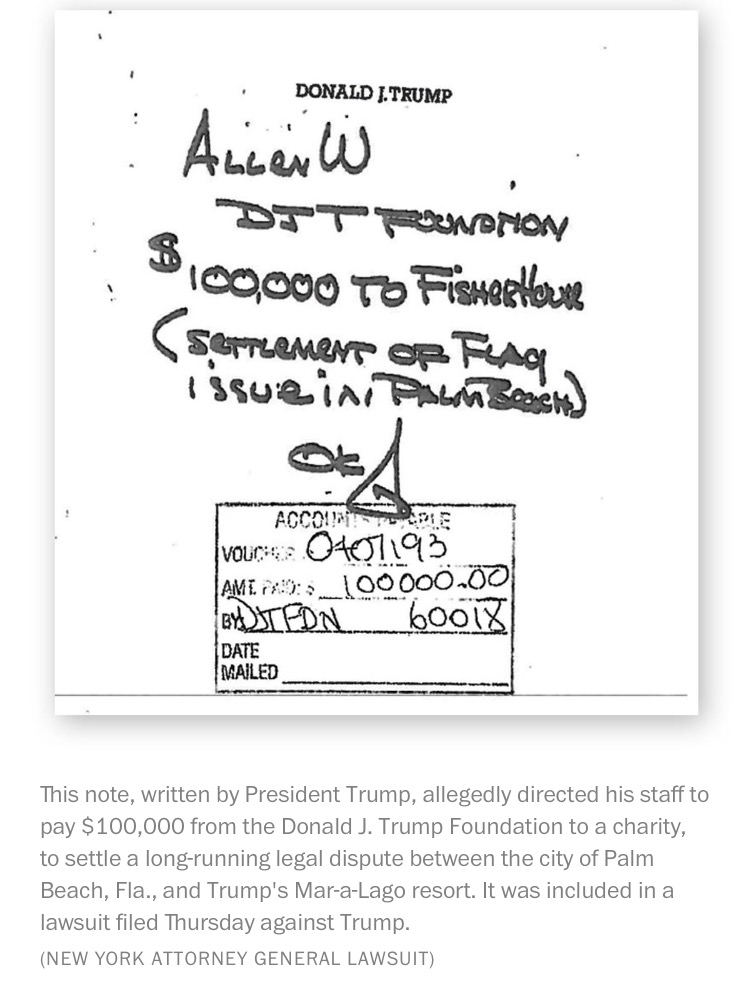 DONALD J. TRUMP
ALLEN W
DJT FOUNDATION
$100,000 TO FISHER HOUSE
(SETTLEMENT OF FLAG
ISSUE IN PALM BEACH)
OK
ACCOUNTS PAYABLE
VOUCHER 0407193
AMT. PAID: $ 100000.00
BY DJTFDN 60018
DATE
MAILED
This note, written by President Trump, allegedly directed his staff to
pay $100,000 from the Donald J. Trump Foundation to a charity,
to settle a long-running legal dispute between the city of Palm
Beach, Fla., and Trump's Mar-a-Lago resort. It was included in a
lawsuit filed Thursday against Trump.
(NEW YORK ATTORNEY GENERAL LAWSUIT)